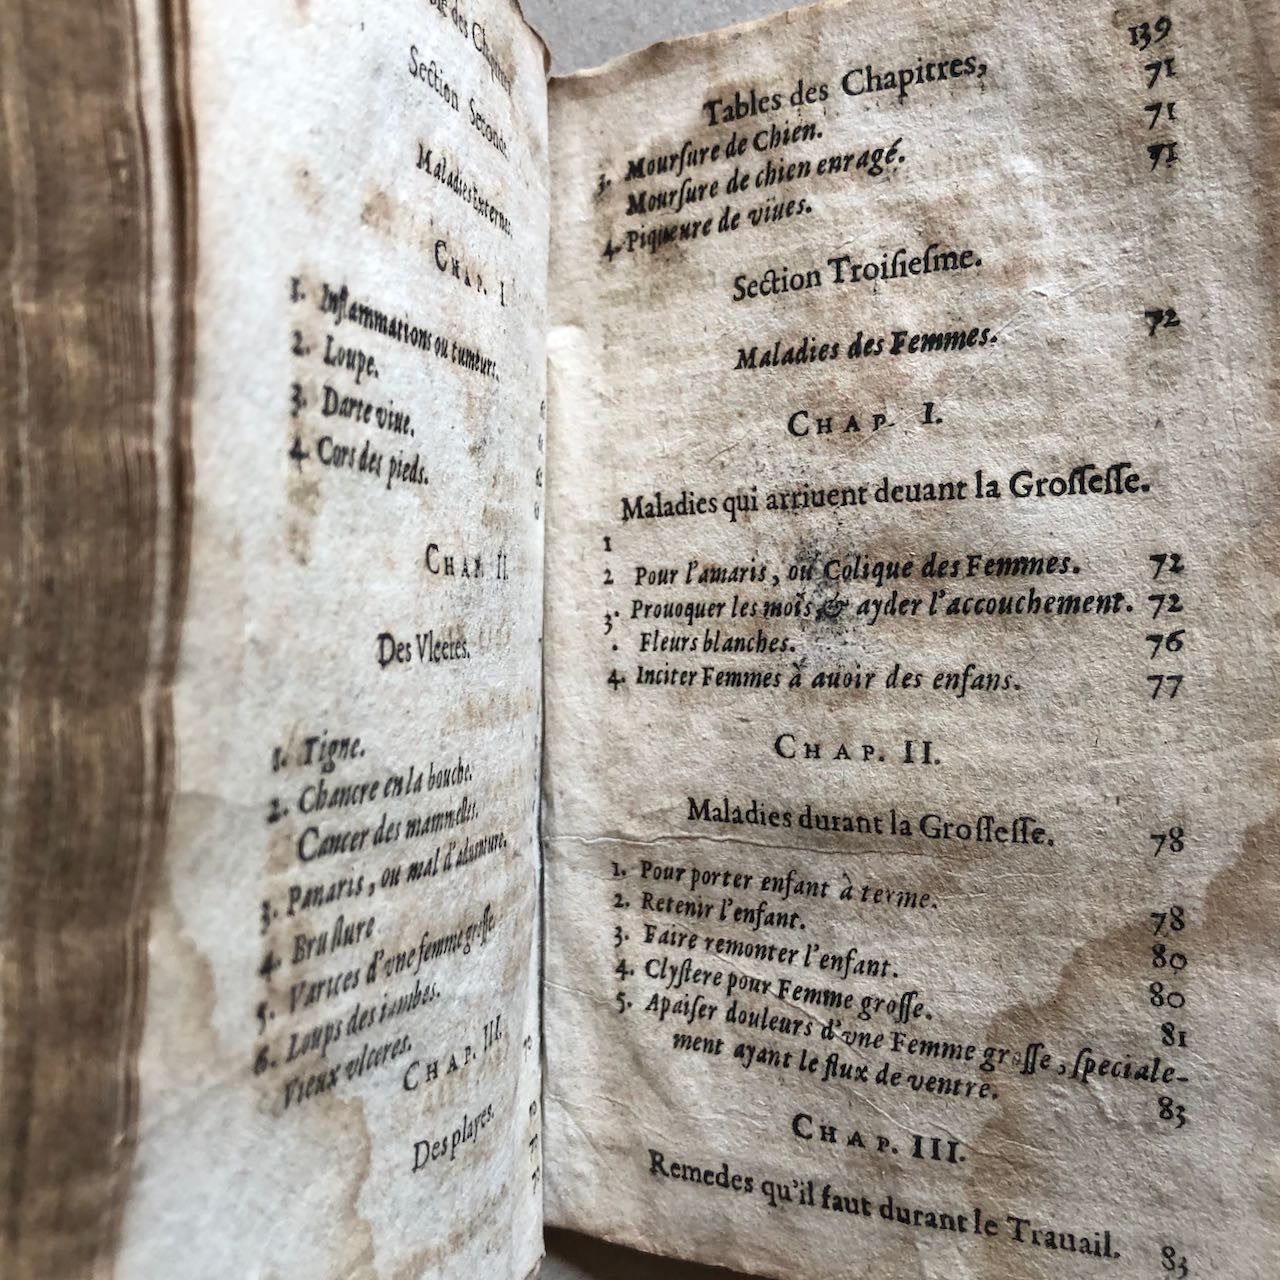 des Chapitres
Section Seconde.
Maladies Externes.
CHAP. I.
1. Inflammations ou tumeurs.
2. Loupe.
3. Darte viue.
4. Cors des pieds.
CHAP. II.
Des Vlceres.
1. Tigne.
2. Chancre en la bouche.
Cancer des mammelles.
3. Panaris, ou mal d'aduanture.
4. Bruſlure
5. Varices d'vne femme groſſe.
6. Loups des iambes.
Vieux vlceres.
CHAP. III.
Des playes.
139
Tables des Chapitres,
3. Mourſure de Chien. 71
Mourſure de chien enragé. 71
4. Piqueure de viues. 71
Section Troiſieſme.
Maladies des Femmes. 72
CHAP. I.
Maladies qui arriuent deuant la Groſſeſſe.
1
2 Pour l'amaris, ou Colique des Femmes. 72
3. Prouoquer les mois, & ayder l'accouchement. 72
. Fleurs blanches. 76
4. Inciter Femmes à auoir des enfans. 77
CHAP. II.
Maladies durant la Groſſeſſe. 78
1. Pour porter enfant à terme. 78
2. Retenir l'enfant. 80
3. Faire remonter l'enfant. 80
4. Clyſtere pour Femme groſſe. 81
5. Apaiſer douleurs d'vne Femme groſſe, ſpeciale-
ment ayant le flux de ventre. 83
CHAP. III.
Remedes qu'il faut durant le Trauail. 83